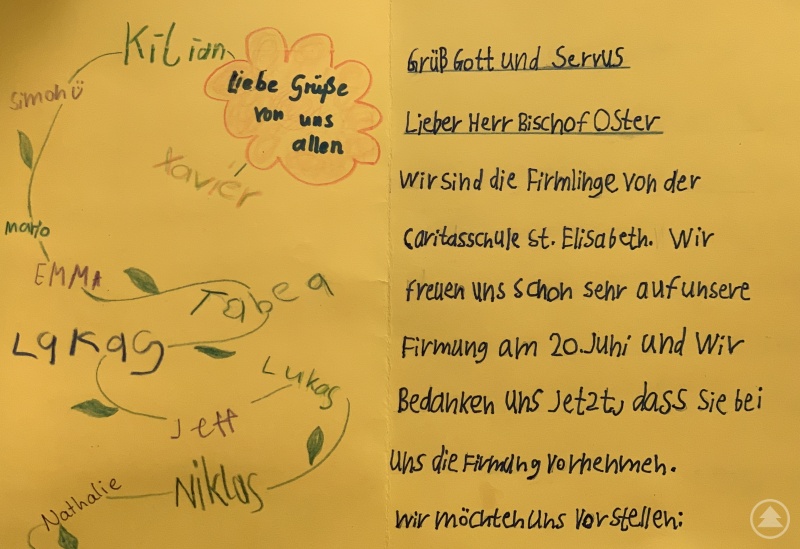 Kilian
Simon ü
Liebe Grüße
von uns
allen
Xavier
mario
EMMA
Tabea
LuKas
Lukas
Jeff
Niklas
Nathalie
Grüß Gott und Servus
Lieber Herr Bischof Oster
Wir sind die Firmlinge von der
Caritasschule St. Elisabeth. Wir
freuen uns schon sehr auf unsere
Firmung am 20. Juni und Wir
Bedanken uns Jetzt, dass Sie bei
uns die Firmung vornehmen.
Wir möchten uns Vorstellen: